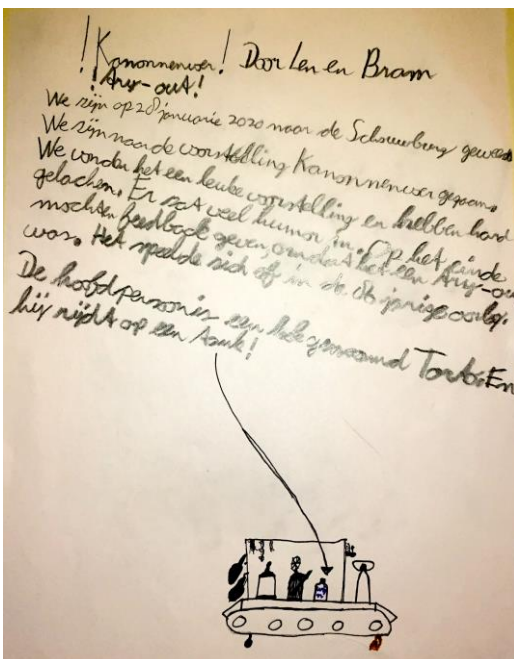 ! Kanonnenvoer! Door Len en Bram
! Try-out!
We zijn op 28 januarie 2020 naar de Schouwburg geweest
We zijn naar de voorstelling Kanonnenvoer gegaan.
We vonden het een leuke voorstelling en hebben hard
gelachen. Er zat veel humor in. Op het einde
mochten feedback geven, omdat het een Try-ou
was. Het speelde zich af in de jarige oorlog.
De hoofdpersoon is een genaamd En
hij rijdt op een tank!